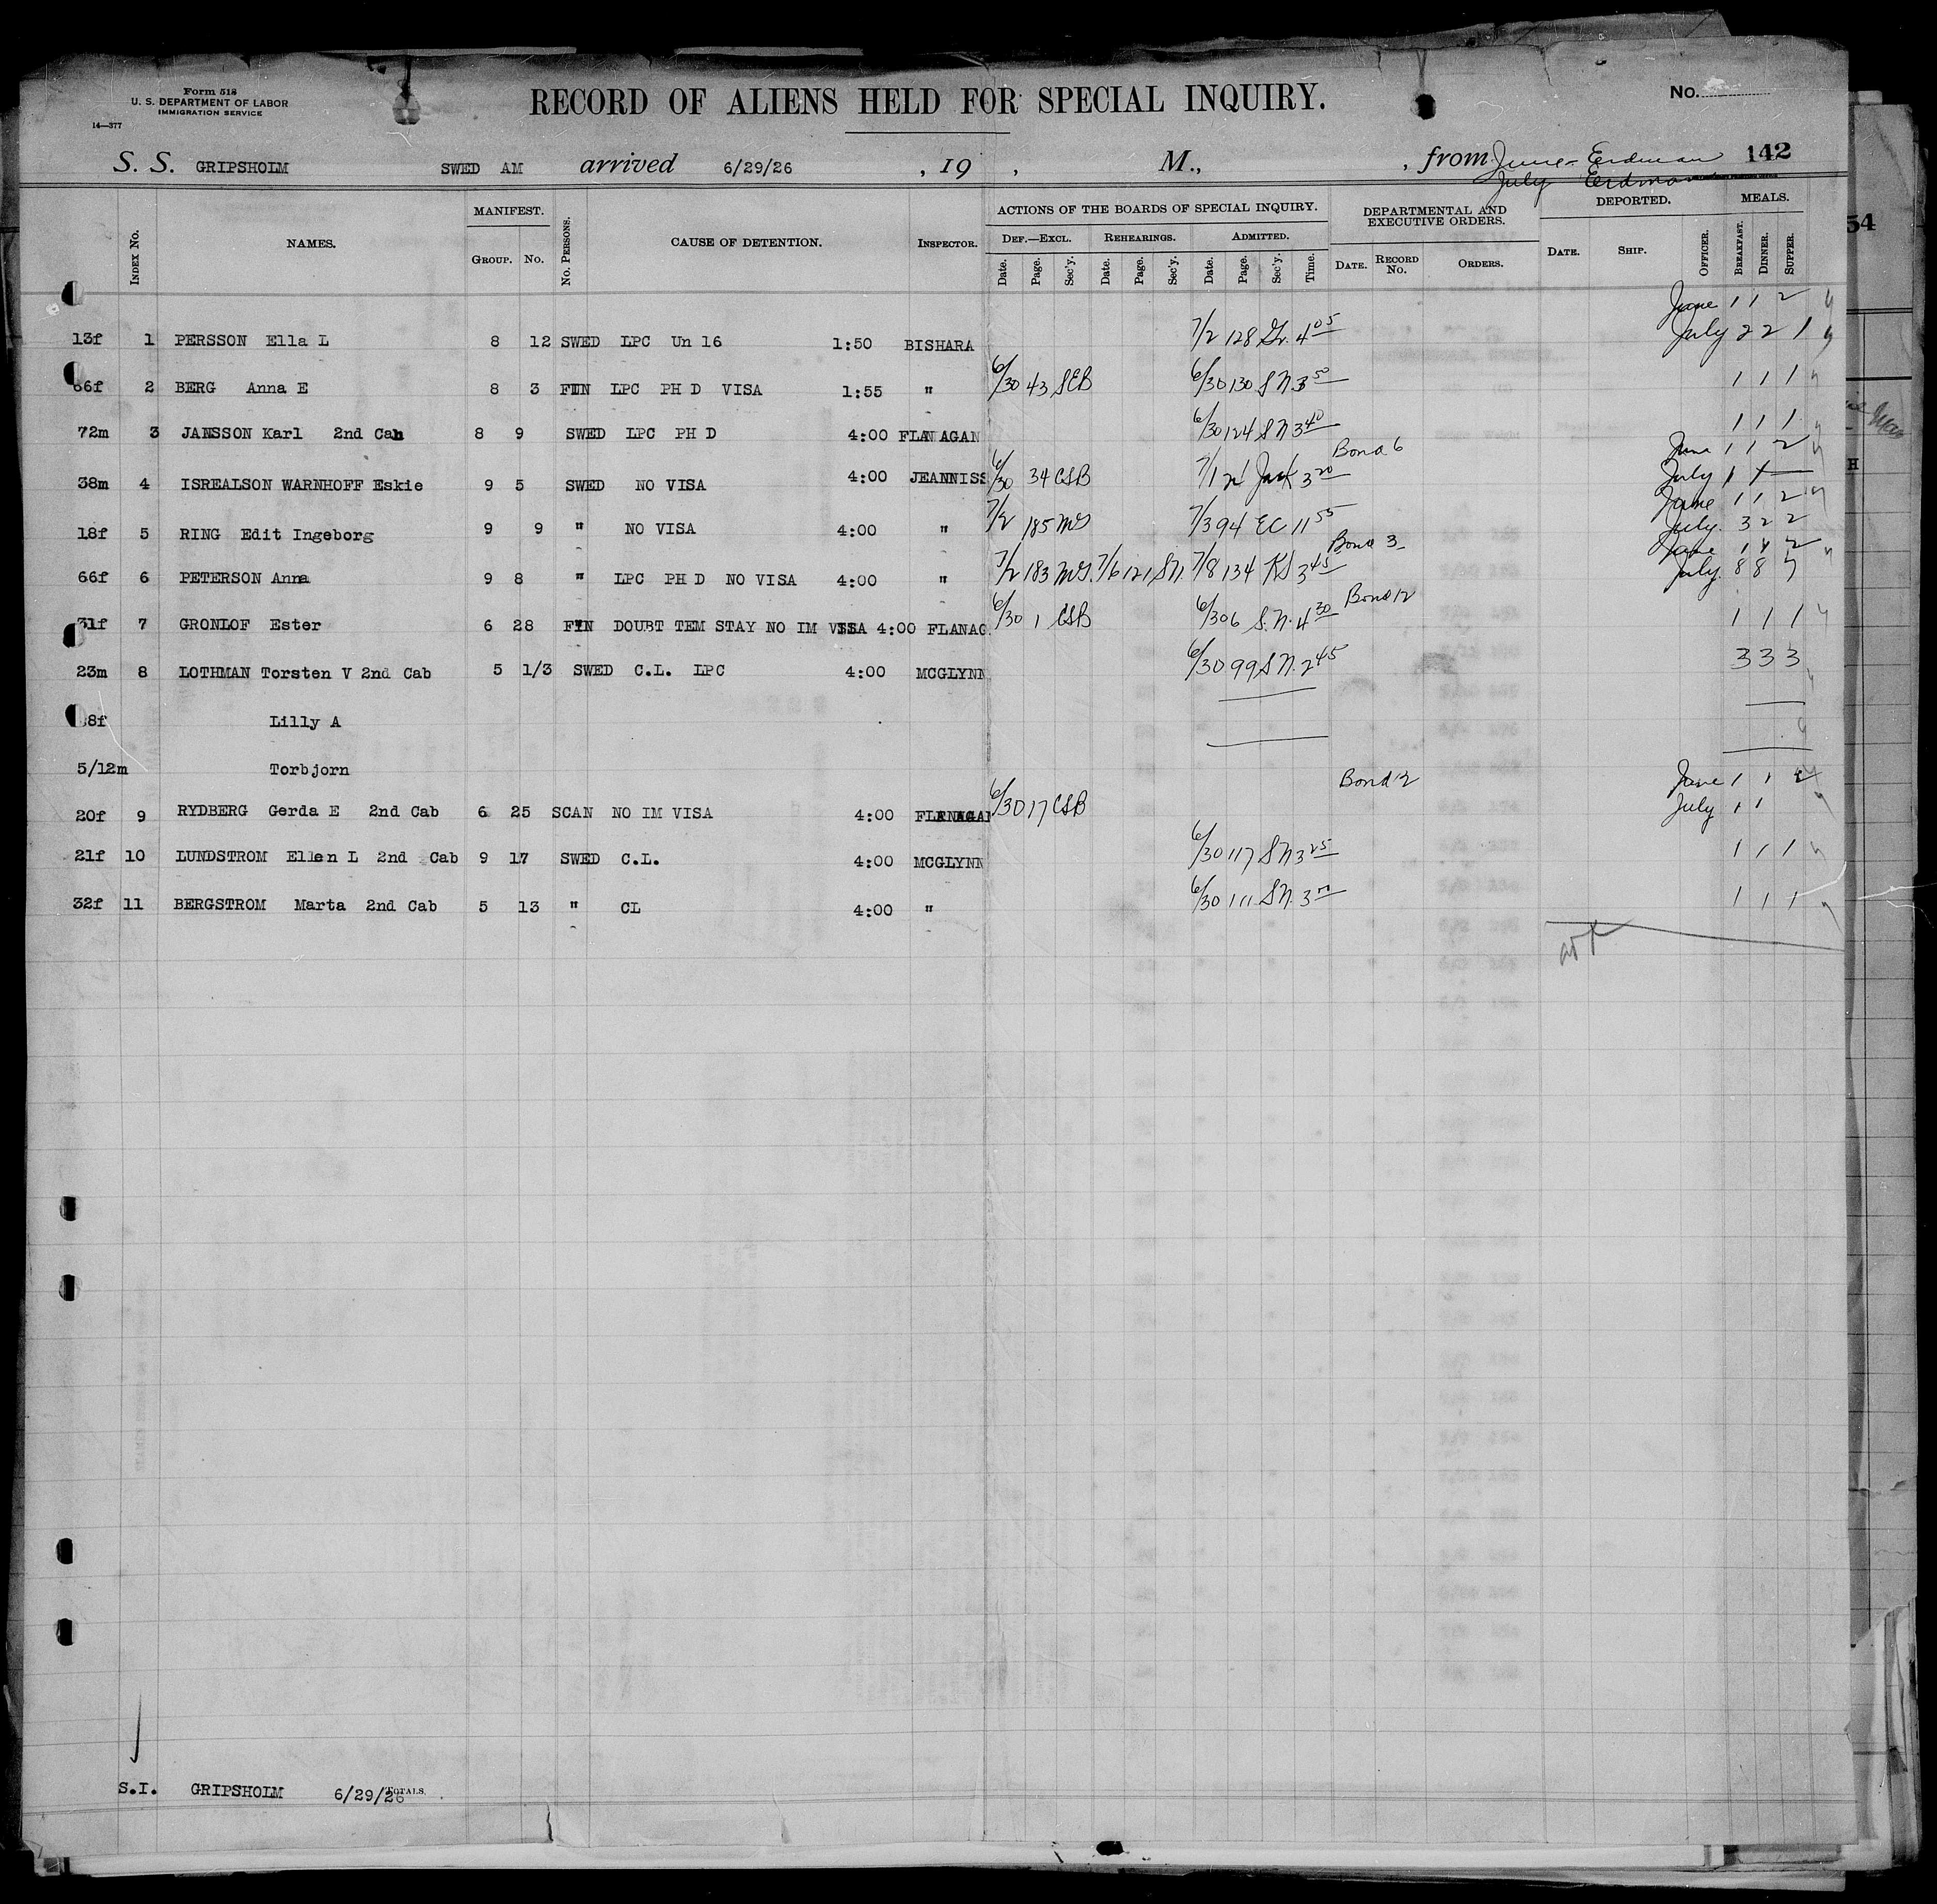 Form 518
U. S. DEPARTMENT OF LABOR
IMMIGRATION SERVICE
14—377
RECORD OF ALIENS HELD FOR SPECIAL INQUIRY.
No.
S. S. GRIPSHOLM SWED AM arrived 6/29/26 , 19 , M., , from June - Erdman 142
July Erdman
54
Index No. NAMES. MANIFEST. GROUP. No. No. Persons. CAUSE OF DETENTION. INSPECTOR. ACTIONS OF THE BOARDS OF SPECIAL INQUIRY. DEF.—EXCL. Date. Page. Sec'y. REHEARINGS. Date. Page. Sec'y. ADMITTED. Date. Page. Sec'y. Time. DEPARTMENTAL AND EXECUTIVE ORDERS. DATE. RECORD No. ORDERS. DEPORTED. DATE. SHIP. OFFICER. MEALS. BREAKFAST. DINNER. SUPPER.
June 1 1 2
13f 1 PERSSON Ella L 8 12 SWED LPC Un 16 1:50 BISHARA 7/2 128 Gr. 4 05 July 2 2 1
66f 2 BERG Anna E 8 3 FIN LPC PH D VISA 1:55 " 6/30 43 SEB 6/30 130 S N 3 50 1 1 1
72m 3 JANSSON Karl 2nd Cab 8 9 SWED LPC PH D 4:00 FLANAGAN 6/30 124 S N 3 40 1 1 1
Bond 6 June 1 1 2
38m 4 ISREALSON WARNHOFF Eskie 9 5 SWED NO VISA 4:00 JEANNISS 6/30 34 CSB 7/1 3 20 July 1
June 1 1 2
18f 5 RING Edit Ingeborg 9 9 " NO VISA 4:00 " 7/2 185 MS 7/3 94 EC 11 55 July. 3 2 2
Bond 3 June 1 1 2
66f 6 PETERSON Anna 9 8 " LPC PH D NO VISA 4:00 " 7/2 183 MS. 7/6 121 S N. 7/8 134 KS 3 45 July. 8 8 7
Bond 12
31f 7 GRONLOF Ester 6 28 FIN DOUBT TEM STAY NO IM VISA 4:00 FLANAG 6/30 1 CSB 6/30 6 S. N. 4 30 1 1 1
23m 8 LOTHMAN Torsten V 2nd Cab 5 1/3 SWED C.L. LPC 4:00 MCGLYNN 6/30 99 S N. 2 45 3 3 3
8f Lilly A
5/12m Torbjorn
Bond 12 June 1 1 2
20f 9 RYDBERG Gerda E 2nd Cab 6 25 SCAN NO IM VISA 4:00 FLANAGAN 6/30 17 CSB July 1 1
21f 10 LUNDSTROM Ellen L 2nd Cab 9 17 SWED C.L. 4:00 MCGLYNN 6/30 117 S N 3 25 1 1 1
32f 11 BERGSTROM Marta 2nd Cab 5 13 " CL 4:00 " 6/30 111 S N. 3 1 1 1
S.I. GRIPSHOLM 6/29/26 TOTALS.